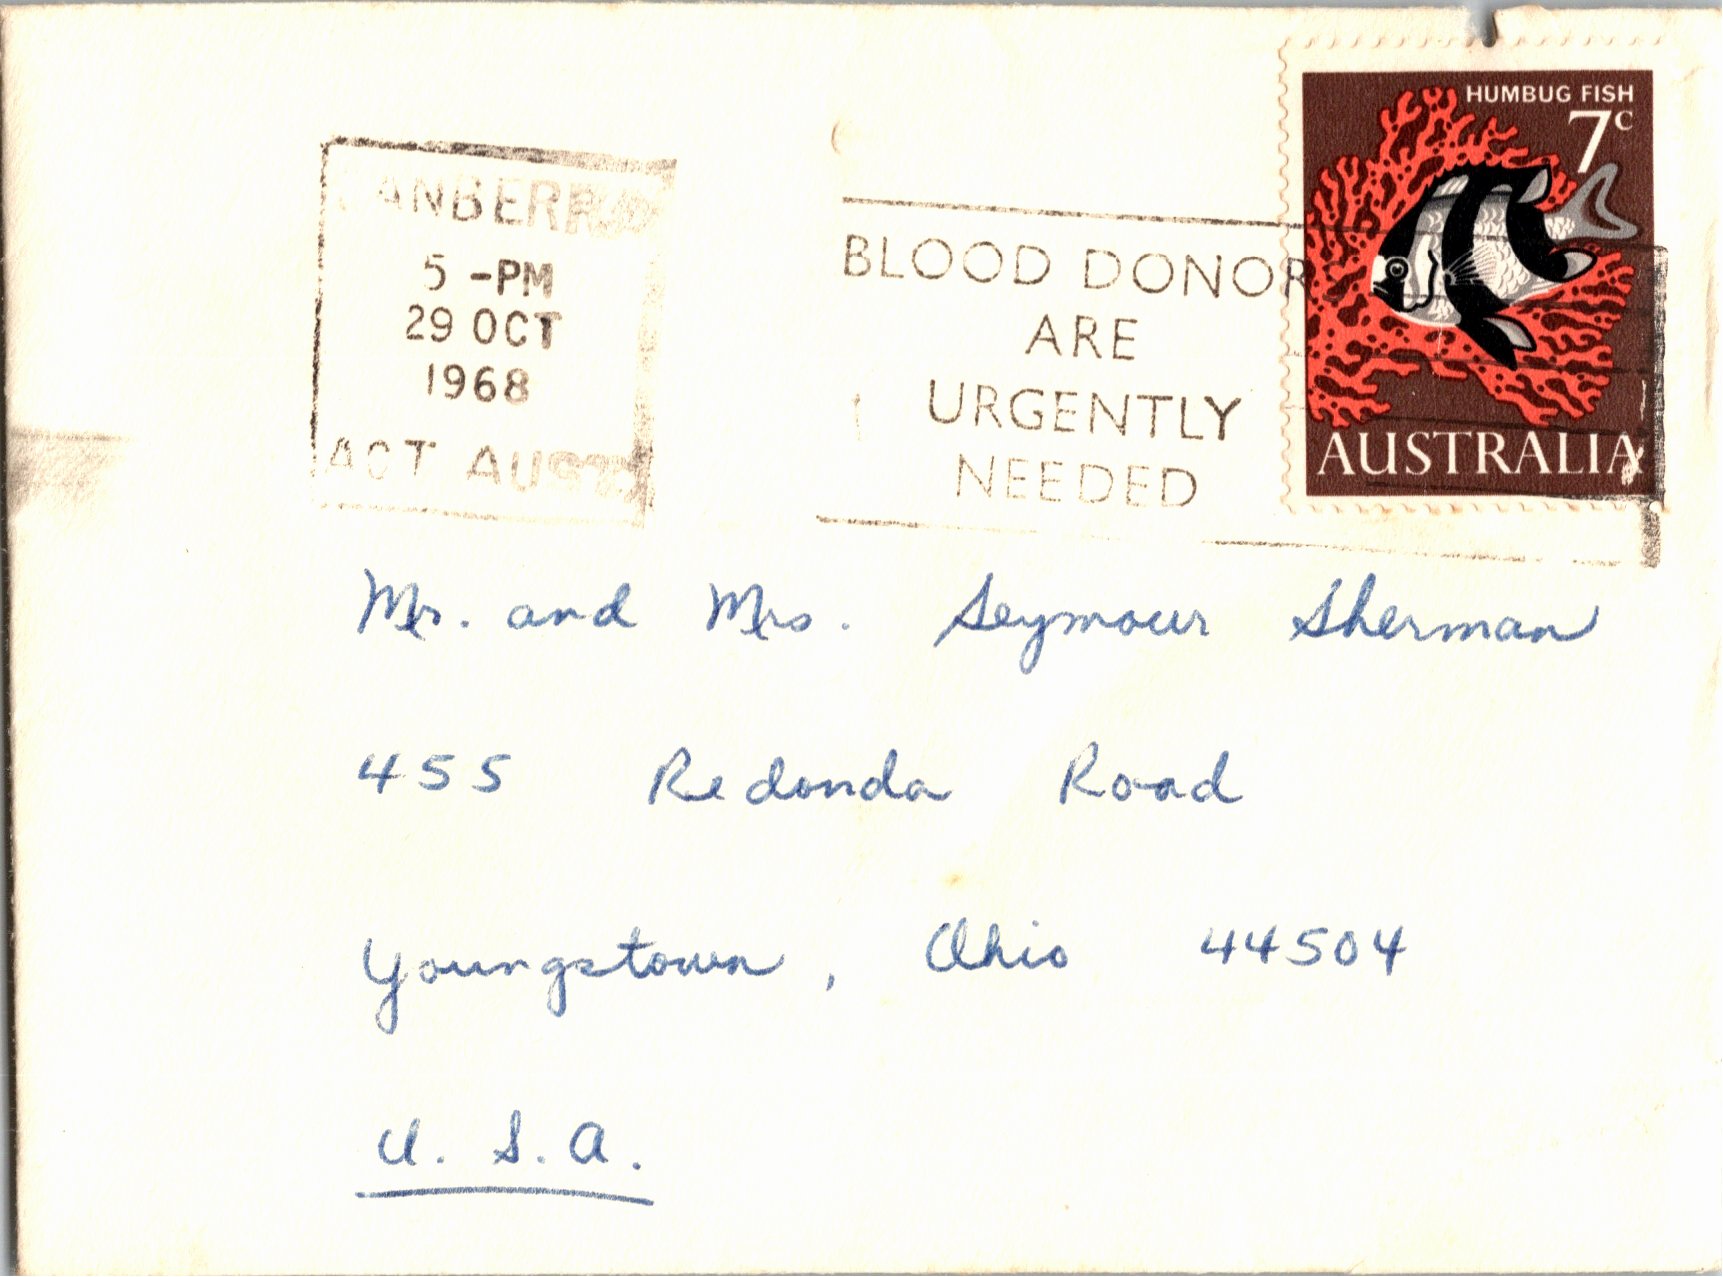 HUMBUG FISH
7c
AUSTRALIA
CANBERRA
5 -PM
29 OCT
1968
ACT AUST
BLOOD DONOR
ARE
URGENTLY
NEEDED
Mr. and Mrs. Seymour Sherman
455 Redonda Road
Youngstown, Ohio 44504
U. S. A.